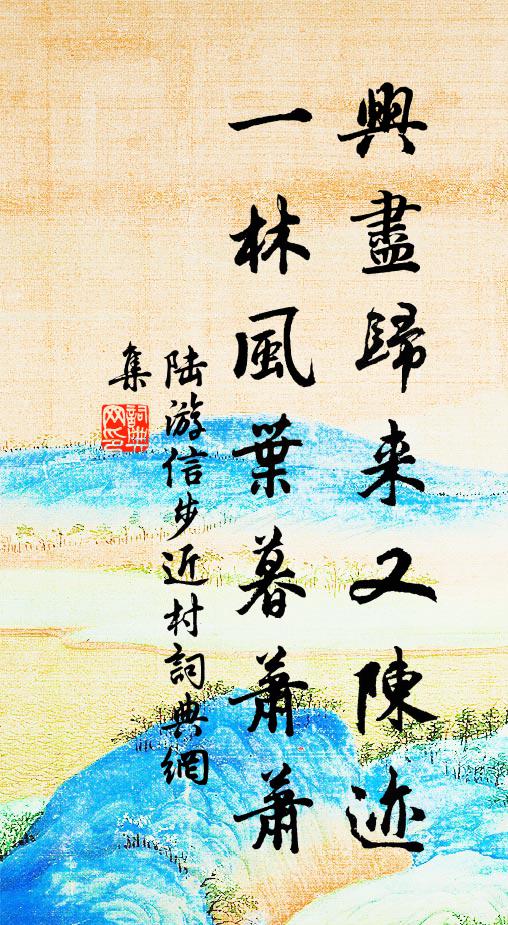 興盡歸来又陳迹
一林風葉暮蕭蕭
陆游信步近村詞典網
集
詞典
网印